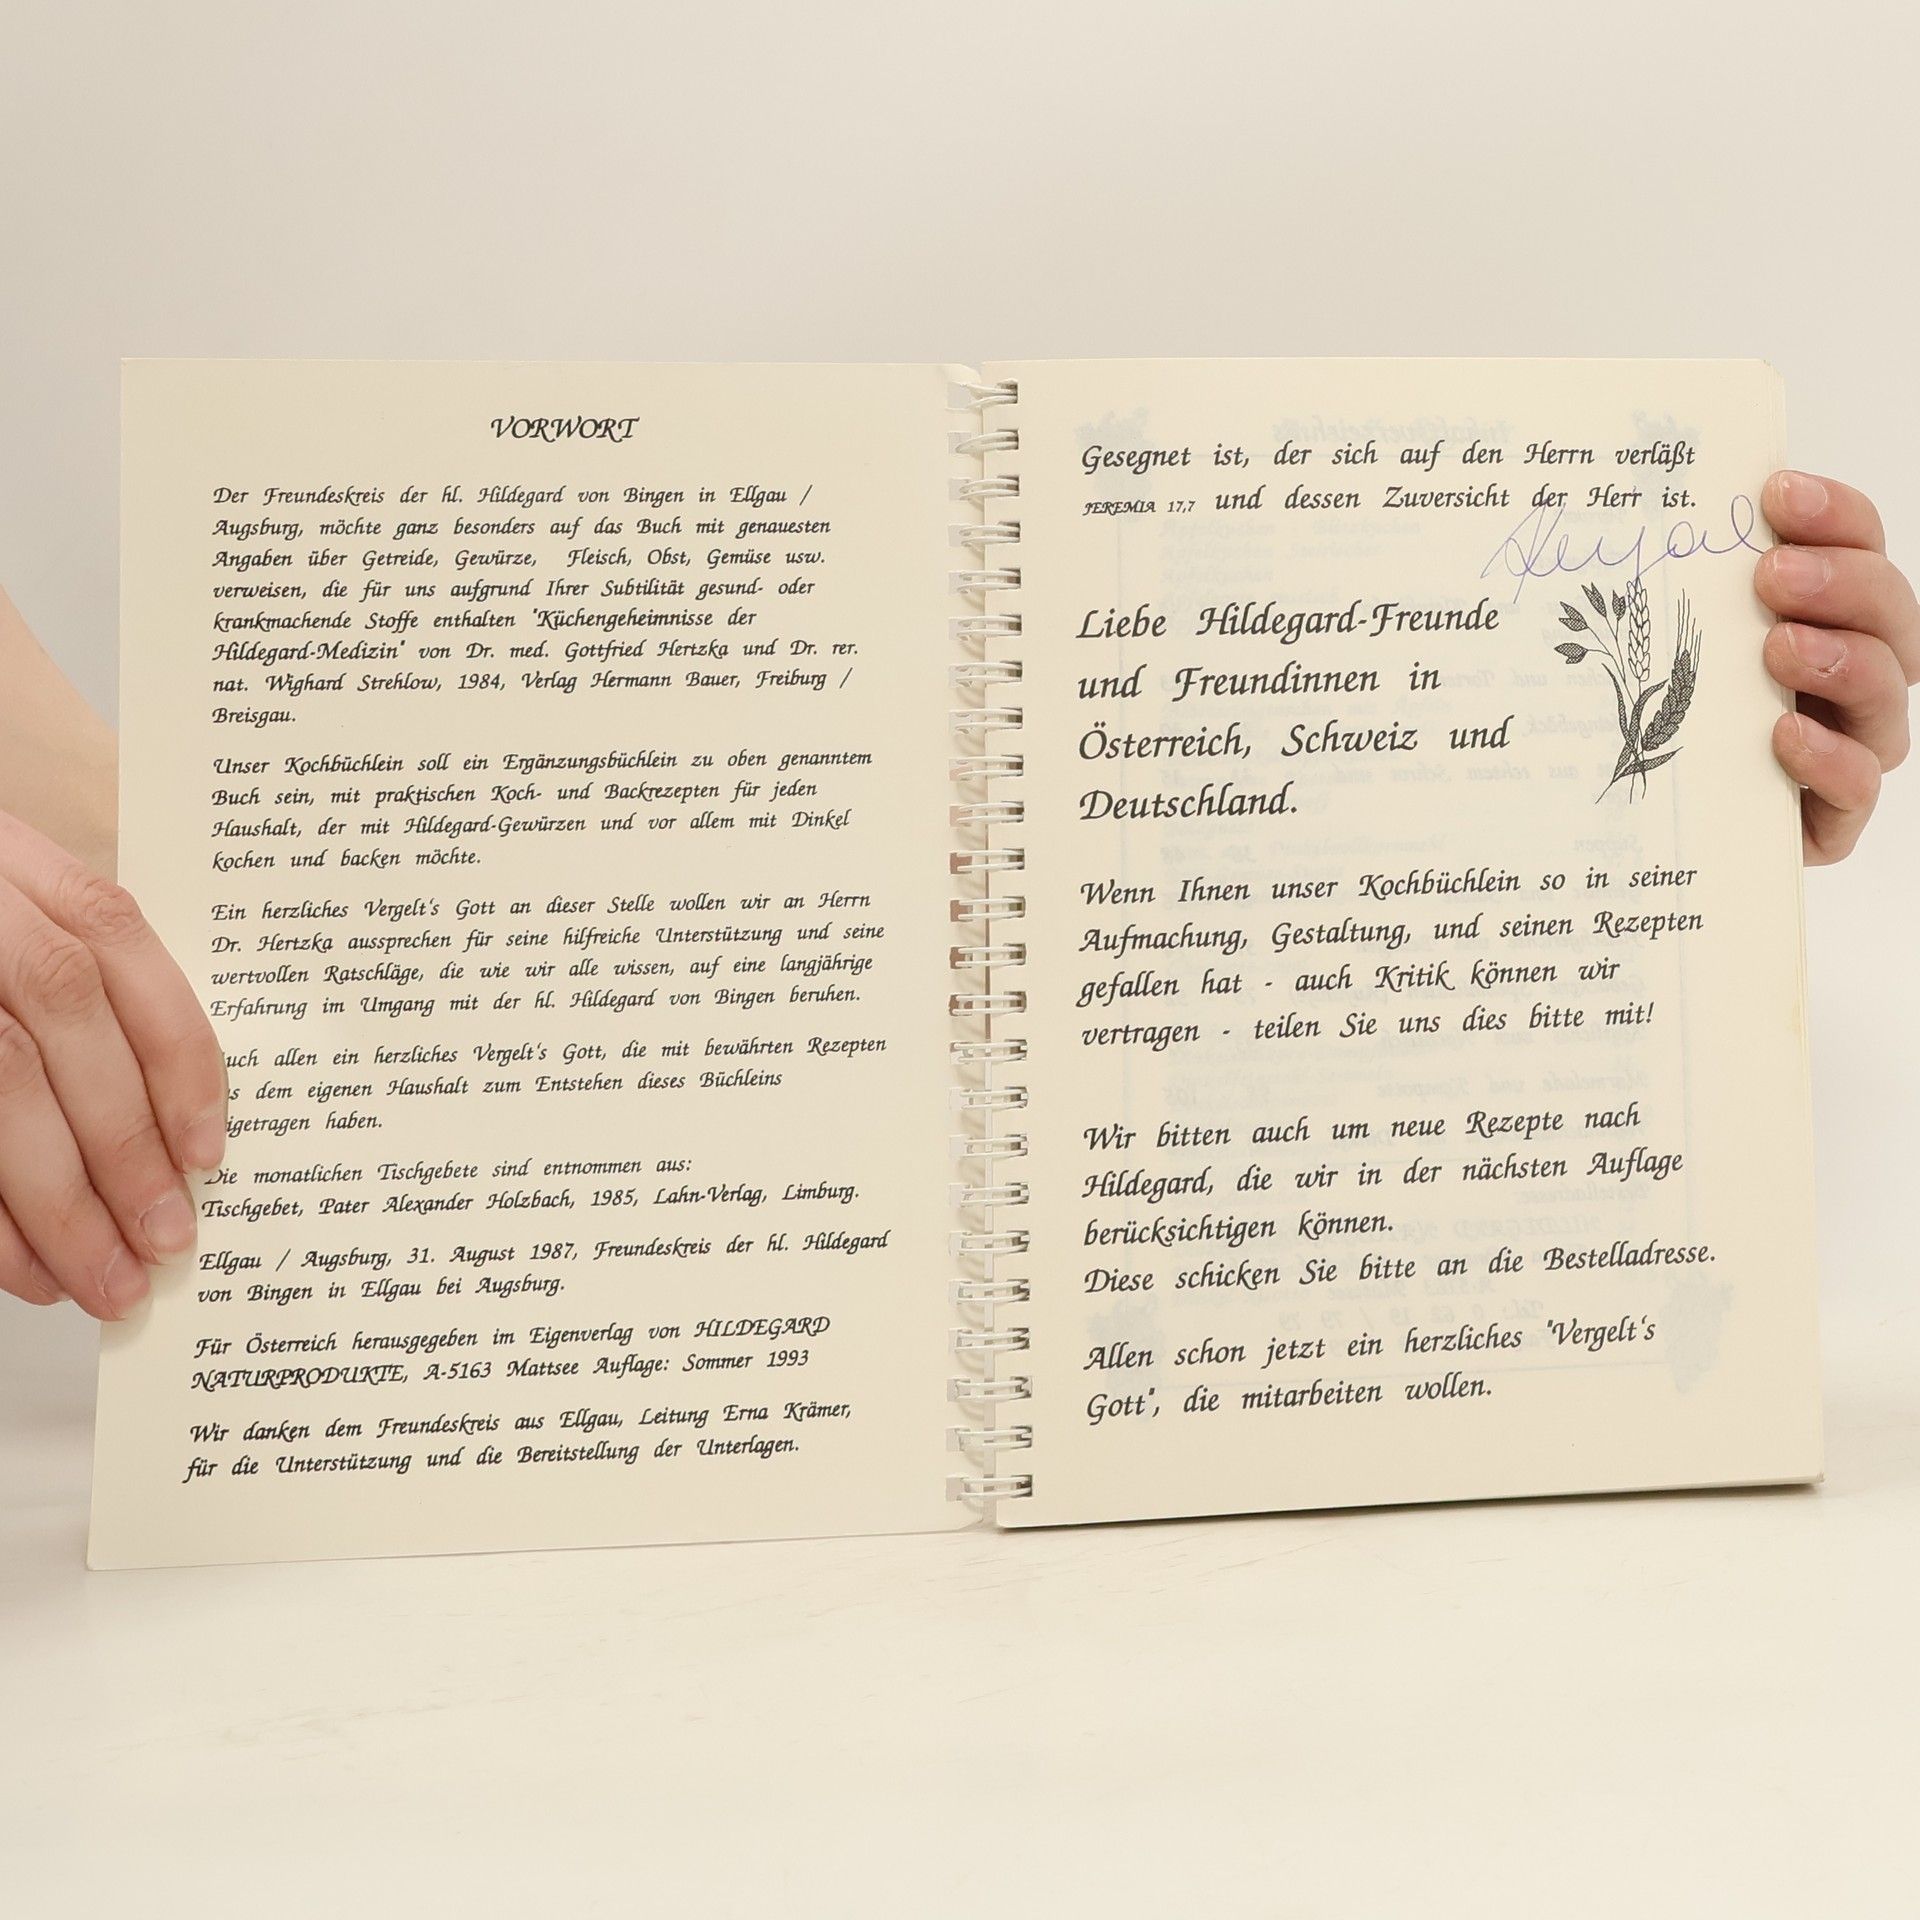 VORWORT
Der Freundeskreis der hl. Hildegard von Bingen in Ellgau /
Augsburg, möchte ganz besonders auf das Buch mit genauesten
Angaben über Getreide, Gewürze, Fleisch, Obst, Gemüse usw.
verweisen, die für uns aufgrund Ihrer Subtilität gesund- oder
krankmachende Stoffe enthalten "Küchengeheimnisse der
Hildegard-Medizin" von Dr. med. Gottfried Hertzka und Dr. rer.
nat. Wighard Strehlow, 1984, Verlag Hermann Bauer, Freiburg /
Breisgau.
Unser Kochbüchlein soll ein Ergänzungsbüchlein zu oben genanntem
Buch sein, mit praktischen Koch- und Backrezepten für jeden
Haushalt, der mit Hildegard-Gewürzen und vor allem mit Dinkel
kochen und backen möchte.
Ein herzliches Vergelt's Gott an dieser Stelle wollen wir an Herrn
Dr. Hertzka aussprechen für seine hilfreiche Unterstützung und seine
wertvollen Ratschläge, die wie wir alle wissen, auf eine langjährige
Erfahrung im Umgang mit der hl. Hildegard von Bingen beruhen.
uch allen ein herzliches Vergelt's Gott, die mit bewährten Rezepten
s dem eigenen Haushalt zum Entstehen dieses Büchleins
igetragen haben.
Die monatlichen Tischgebete sind entnommen aus:
Tischgebet, Pater Alexander Holzbach, 1985, Lahn-Verlag, Limburg.
Ellgau / Augsburg, 31. August 1987, Freundeskreis der hl. Hildegard
von Bingen in Ellgau bei Augsburg.
Für Österreich herausgegeben im Eigenverlag von HILDEGARD
NATURPRODUKTE, A-5163 Mattsee Auflage: Sommer 1993
Wir danken dem Freundeskreis aus Ellgau, Leitung Erna Krämer,
für die Unterstützung und die Bereitstellung der Unterlagen.
Gesegnet ist, der sich auf den Herrn verläßt
JEREMIA 17,7 und dessen Zuversicht der Herr ist.
Liebe Hildegard-Freunde
und Freundinnen in
Österreich, Schweiz und
Deutschland.
Wenn Ihnen unser Kochbüchlein so in seiner
Aufmachung, Gestaltung, und seinen Rezepten
gefallen hat - auch Kritik können wir
vertragen - teilen Sie uns dies bitte mit!
Wir bitten auch um neue Rezepte nach
Hildegard, die wir in der nächsten Auflage
berücksichtigen können.
Diese schicken Sie bitte an die Bestelladresse.
Allen schon jetzt ein herzliches "Vergelt's
Gott", die mitarbeiten wollen.